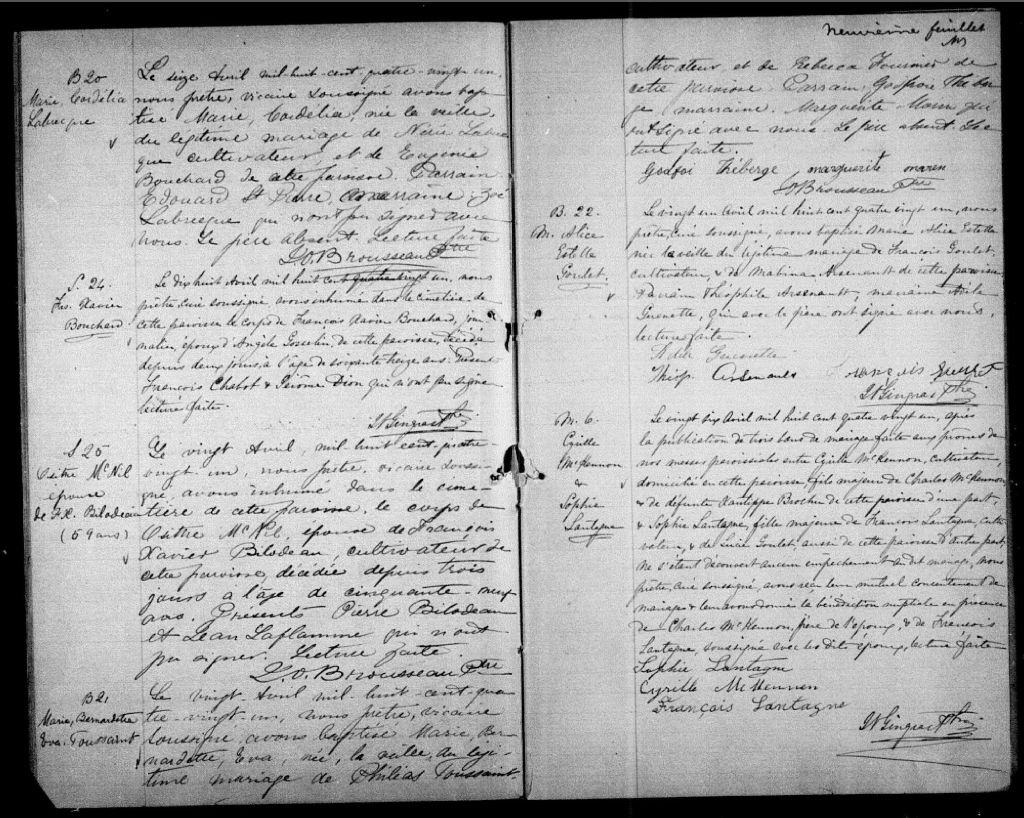 B 20
Marie, Cordélia
Labrecque
Le seize Avril mil-huit-cent-quatre-vingt un,
nous prêtre, vicaire soussigné avons bap-
tisé Marie, Cordélia, née la veille,
du légitime mariage de Labrec
que cultivateur, et de Eugénie
Bouchard de cette paroisse. Parrain
Edouard St Pierre, marraine Zoé
Labrecque qui n'ont pu signer avec
nous. Le père absent. Lecture faite
J.O. Brousseau Ptre
S. 24.
Frs Xavier
Bouchard
Le dix huit Avril mil huit cent quatre vingt un, nous
prêtre, curé soussigné avons inhumé dans le cimetière de
cette paroisse le corps de François Xavier Bouchard, jour
nalier, époux d'Angèle Gosselin, de cette paroisse, décédé
depuis deux jours, à l'âge de soixante treize ans. Présents
François Chabot & Jérôme Dion qui n'ont pu signer
lecture faite.
Gingras Ptre
S 25
Osithe McNil
épouse
de F.X. Bilodeau
(59 ans)
Le vingt Avril, mil-huit-cent-quatre-
vingt-un, nous prêtre, vicaire soussi-
gné, avons inhumé dans le cime-
tière de cette paroisse, le corps de
Osithe McNil, épouse de François
Xavier Bilodeau, cultivateur de
cette paroisse, décédée depuis trois
jours à l'âge de cinquante-neuf
ans. Présents Pierre Bilodeau
et Jean Laflamme qui n'ont
pu signer. Lecture faite.
J.O. Brousseau Ptre
B 21
Marie, Bernardette
Eva. Toussaint
Le vingt Avril mil-huit-cent-qua
tre-vingt-un, nous prêtre, vicaire
soussigné, avons baptisé Marie, Ber-
nardette, Eva, née, la veille, du légi-
time mariage de Philéas Toussaint
neuvième feuillet
cultivateur, et de Rebecca Fournier de
cette paroisse Parrain, Godfroi Théber
ge marraine. Marguerite Morin qui
ont signé avec nous. Le père absent. Lec
ture faite.
Godfoi Théberge marguerite moren
J.O. Brousseau Ptre
B. 22.
M. Alice
Estella
Goulet.
Le vingt un Avril mil huit cent quatre vingt un, nous
prêtre, curé soussigné, avons baptisé Marie Alice Estella
née la veille du légitime mariage de François Goulet,
cultivateur, & de Malvina Arsenault de cette paroisse
Parrain Théophile Arsenault, marraine Adèle
Guenette, qui avec le père ont signé avec nous,
lecture faite.
Adèle Guenette
Théop. Arsenault François
Gingras Ptre
M. 6.
Cyrille
McKennon
&
Sophie
Lantagne
Le vingt six Avril mil huit cent quatre vingt un, après
la publication de trois bans de mariage faite aux prônes de
nos messes paroissiales entre Cyrille McKennon, cultivateur,
domicilié en cette paroisse, fils majeur de Charles McKennon
& de défunte Xantippe Brochu de cette paroisse d'une part,
& Sophie Lantagne, fille majeure de François Lantagne, culti
vateur, & de Lucie Goulet, aussi de cette paroisse d'autre part
Ne s'étant découvert aucun empêchement au dit mariage, nous
prêtre, curé soussigné, avons reçu leur mutuel consentement de
mariage & leur avons donné la bénédiction nuptiale en présence
de Charles McKennon, père de l'époux, & de François
Lantagne, soussigné avec les dits époux, lecture faite
Sophie Lantagne
Cyrille McKennon
François Lantagne
Gingras Ptre